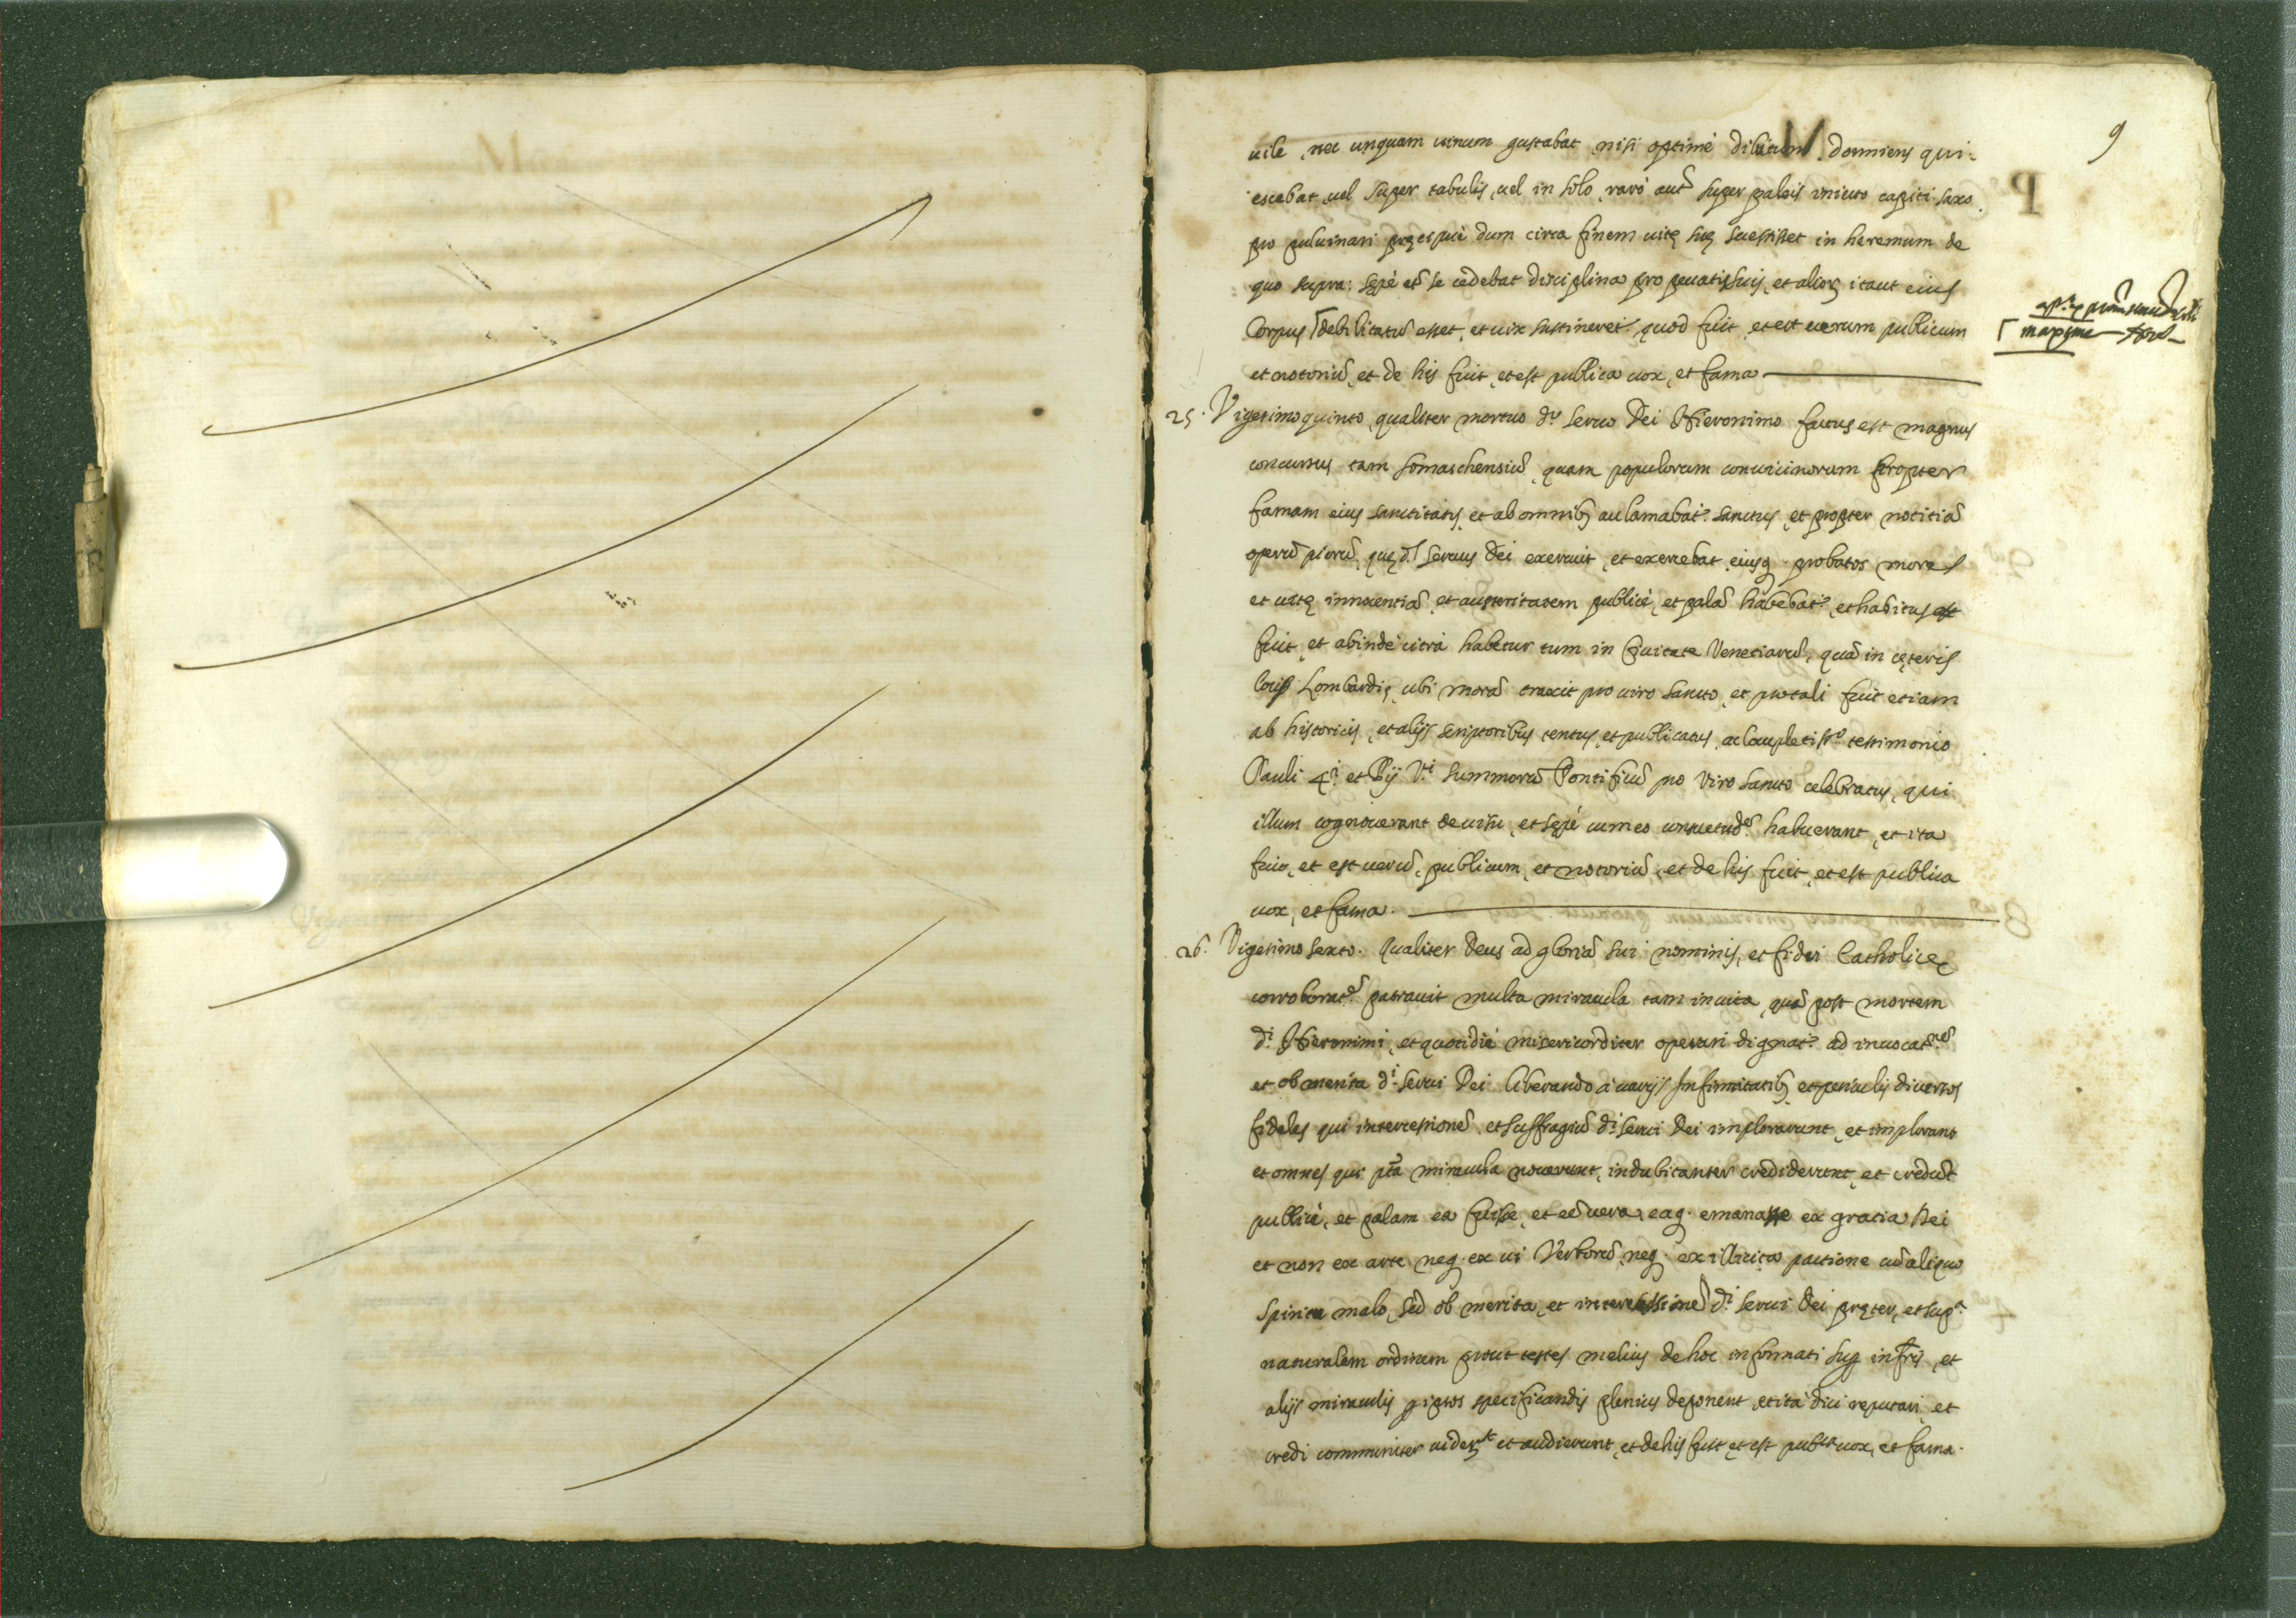 9
uile, nec unquam uinum gustabat nisi optimè dilutum. dormiens qui-
escebat uel super tabulis, uel in solo, rarò aut super paleis iniecto capiti saxo
pro puluinari pręcipuè dum circa finem uitę suę secessisset in heremum de
quo supra: sępè et se cedebat disciplina pro peccatis suis, et alior itaut eius
Corpus debilitatũ esset, et uix sustineret. quod fuit, et est uerum publicum
maxime
et notoriũ, et de his fuit, et est publica uox, et fama
25. Vigesimoquinto, qualiter mortuo d.º seruo Dei Hieronimo factus est magnus
concursus tam Somaschensiũ, quam populorum conuicinorum propter
famam eius sanctitatis, et ab omnibꝫ acclamabat.ʳ sanctus, et propter notitiã
operũ piorũ, quę d.ˢ seruus Dei exercuit, et exercebat, eiusq. probatos mores
et uitę innocentiã, et austeritatem publicè, et palã habebat.ʳ, et habitus est
fuit, et abinde citrà habetur tum in Ciuitate Venetiarũ, quã in cęteris
locis Lombardię ubi morã traxit pro uiro sancto, et pro tali fuit etiam
ab historicis, et alijs scriptoribus tentus, et publicatus, ac locupletiss.º testimonio
Pauli 4.ⁱ et Pij V.ⁱ summorũ Pontificũ pro Viro sancto celebratus, qui
illum cognouerant de uisu, et sępè cum eo consuetud.ᵉᵐ habuerant, et ita
fuit, et est uerũ, publicum, et notoriũ, et de his fuit, et est publica
uox, et fama.
26. Vigesimo sexto. Qualiter Deus ad gloriã sui nominis, et fidei Catholicę
corroborat.ᵉᵐ patrauit multa miracula tam in uita, quã post mortem
d.ⁱ Hieronimi, et quotidiè misericorditer operari dignat.ʳ ad inuocat.ⁿᵉᵐ
et ob merita d.ⁱ serui Dei liberando à uarijs Infirmitatibꝫ, et periculis diuersos
fideles qui intercessionẽ, et suffragiũ d.ⁱ serui Dei implorarunt, et implorant
et omnes qui pta miracula nouerunt, indubitanter crediderunt, et credũt
publicè, et palam ea fuisse, et eẽ uera, eaq. emanasse ex gratia Dei
et non ex arte neq. ex ui Verborũ, neq. ex illicita pactione cũ aliquo
spiritu malo, sed ob merita, et intercessionẽ d.ⁱ serui Dei pręter, et sup.ᵃ
naturalem ordinem prout testes melius de hoc informati sup infris, et
alijs miraculis p ipsos specificandis plenius deponent, et ità dici reputari, et
credi communiter uider.ᵗ et audierunt, et de his fuit, et est pub.ᶜᵃ uox, et fama.